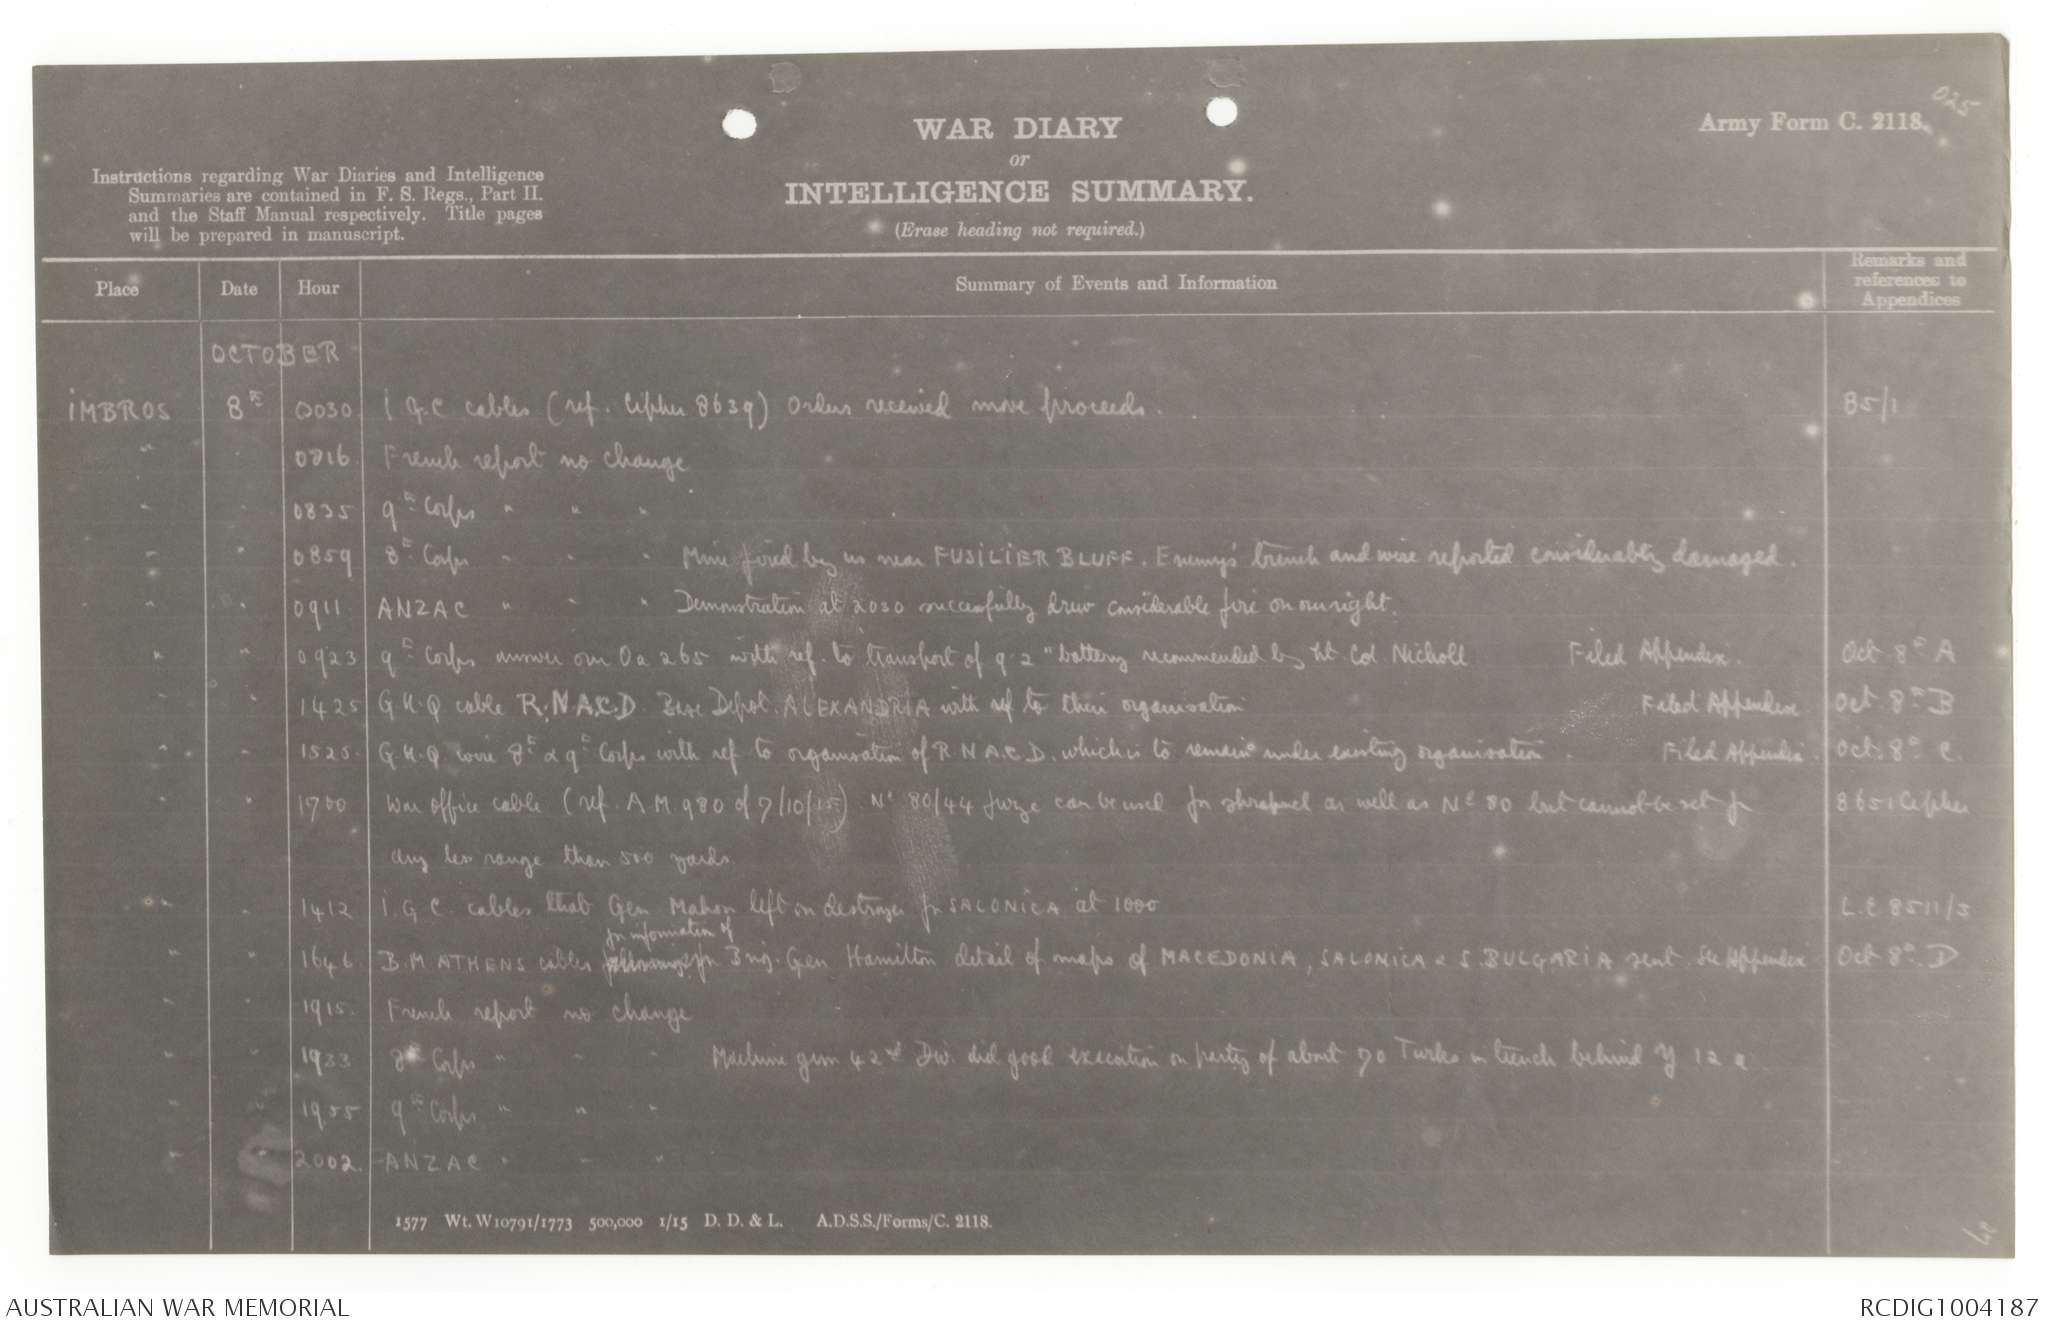 025
Army Form C. 2118.
WAR DIARY
or
INTELLIGENCE SUMMARY.
(Erase heading not required.)
Instructions regarding War Diaries and Intelligence
Summaries are contained in F. S. Regs., Part II.
and the Staff Manual respectively. Title pages
will be prepared in manuscript.
Place Date Hour Summary of Events and Information Remarks and references to Appendices
OCTOBER
IMBROS 8th 0030 I.G.C cables (ref. Cipher 8639) Orders received move proceeds. 85/1
" " 0816 French report no change
" " 0835 9th Corps " " "
" " 0859 8th Corps " " " Mine fired by us near FUSILIER BLUFF. Enemy's trench and wire reported considerably damaged.
" " 0911 ANZAC " " " Demonstration at 2030 successfully drew considerable fire on our right.
" " 0923 9th Corps answer our Oa 265 with ref. to transport of 9.2" battery recommended by Lt Col Nicholl Filed Appendix. Oct 8th A
" " 1425 G.H.Q cable R.N.A.C.D. Base Depot. ALEXANDRIA with ref to their organisation Filed Appendix Oct 8th B
" " 1525 G.H.Q wire 8th & 9th Corps with ref to organisation of R.N.A.C.D. which is to remain under existing organisation. Filed Appendix. Oct. 8th C.
" " 1700 War office cable (ref. A.M. 980 of 7/10/15) No 80/44 fuze can be used for shrapnel as well as No 80 but cannot be set for 8651 Cipher
any less range than 500 yards
" " 1412 I.G.C. cables that Gen Mahon left on destroyer for SALONICA at 1000 L.C 8511/3
for information of
" " 1646 B.M ATHENS cables for Brig. Gen Hamilton detail of maps of MACEDONIA, SALONICA & S. BULGARIA sent. See Appendix Oct 8th D
" " 1915. French report no change
" " 1933 8th Corps " " " Machine gun 42nd Div. did good execution on party of about 70 Turks in trench behind Y 12 a
" " 1955 9th Corps " " "
" 2002. ANZAC " " "
1577 Wt. W10791/1773 500,000 1/15 D. D. & L. A.D.S.S./Forms/C. 2118.
AUSTRALIAN WAR MEMORIAL
RCDIG1004187